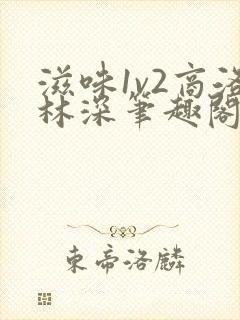 滋味1v2高洛
林深笔趣阁
东帝洛麟